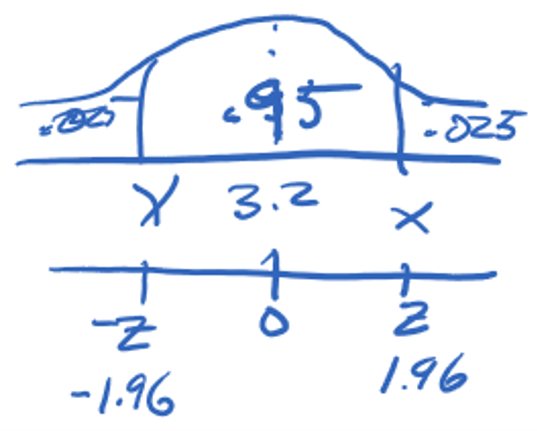 .95
.025 .025
X 3.2 X
-Z 0 Z
-1.96 1.96